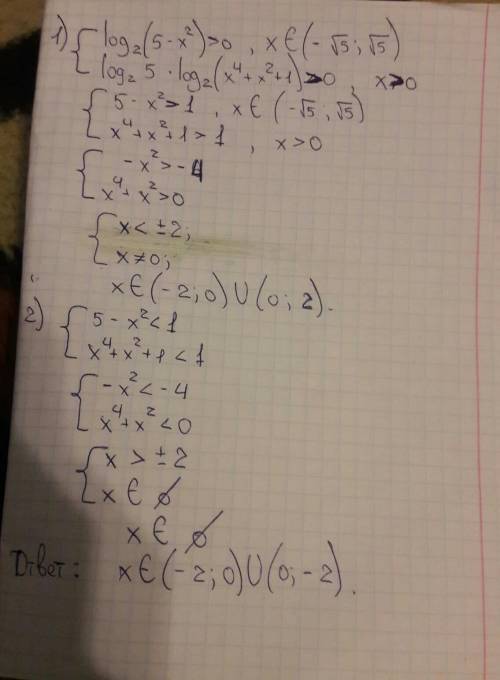 1) { log₂(5-x²)>0 , x∈(-√5; √5)
log₂ 5 · log₂(x⁴+x²+1)>0 , x>0
{ 5-x²>1 , x∈(-√5; √5)
x⁴+x²+1>1 , x>0
{ -x²>-4
x⁴+x²>0
{ x<±2;
x≠0;
x∈(-2; 0)∪(0; 2).
2) { 5-x²<1
x⁴+x²+1<1
{ -x²<-4
x⁴+x²<0
{ x>±2
x∈∅
x∈∅
Ответ: x∈(-2; 0)∪(0; -2).